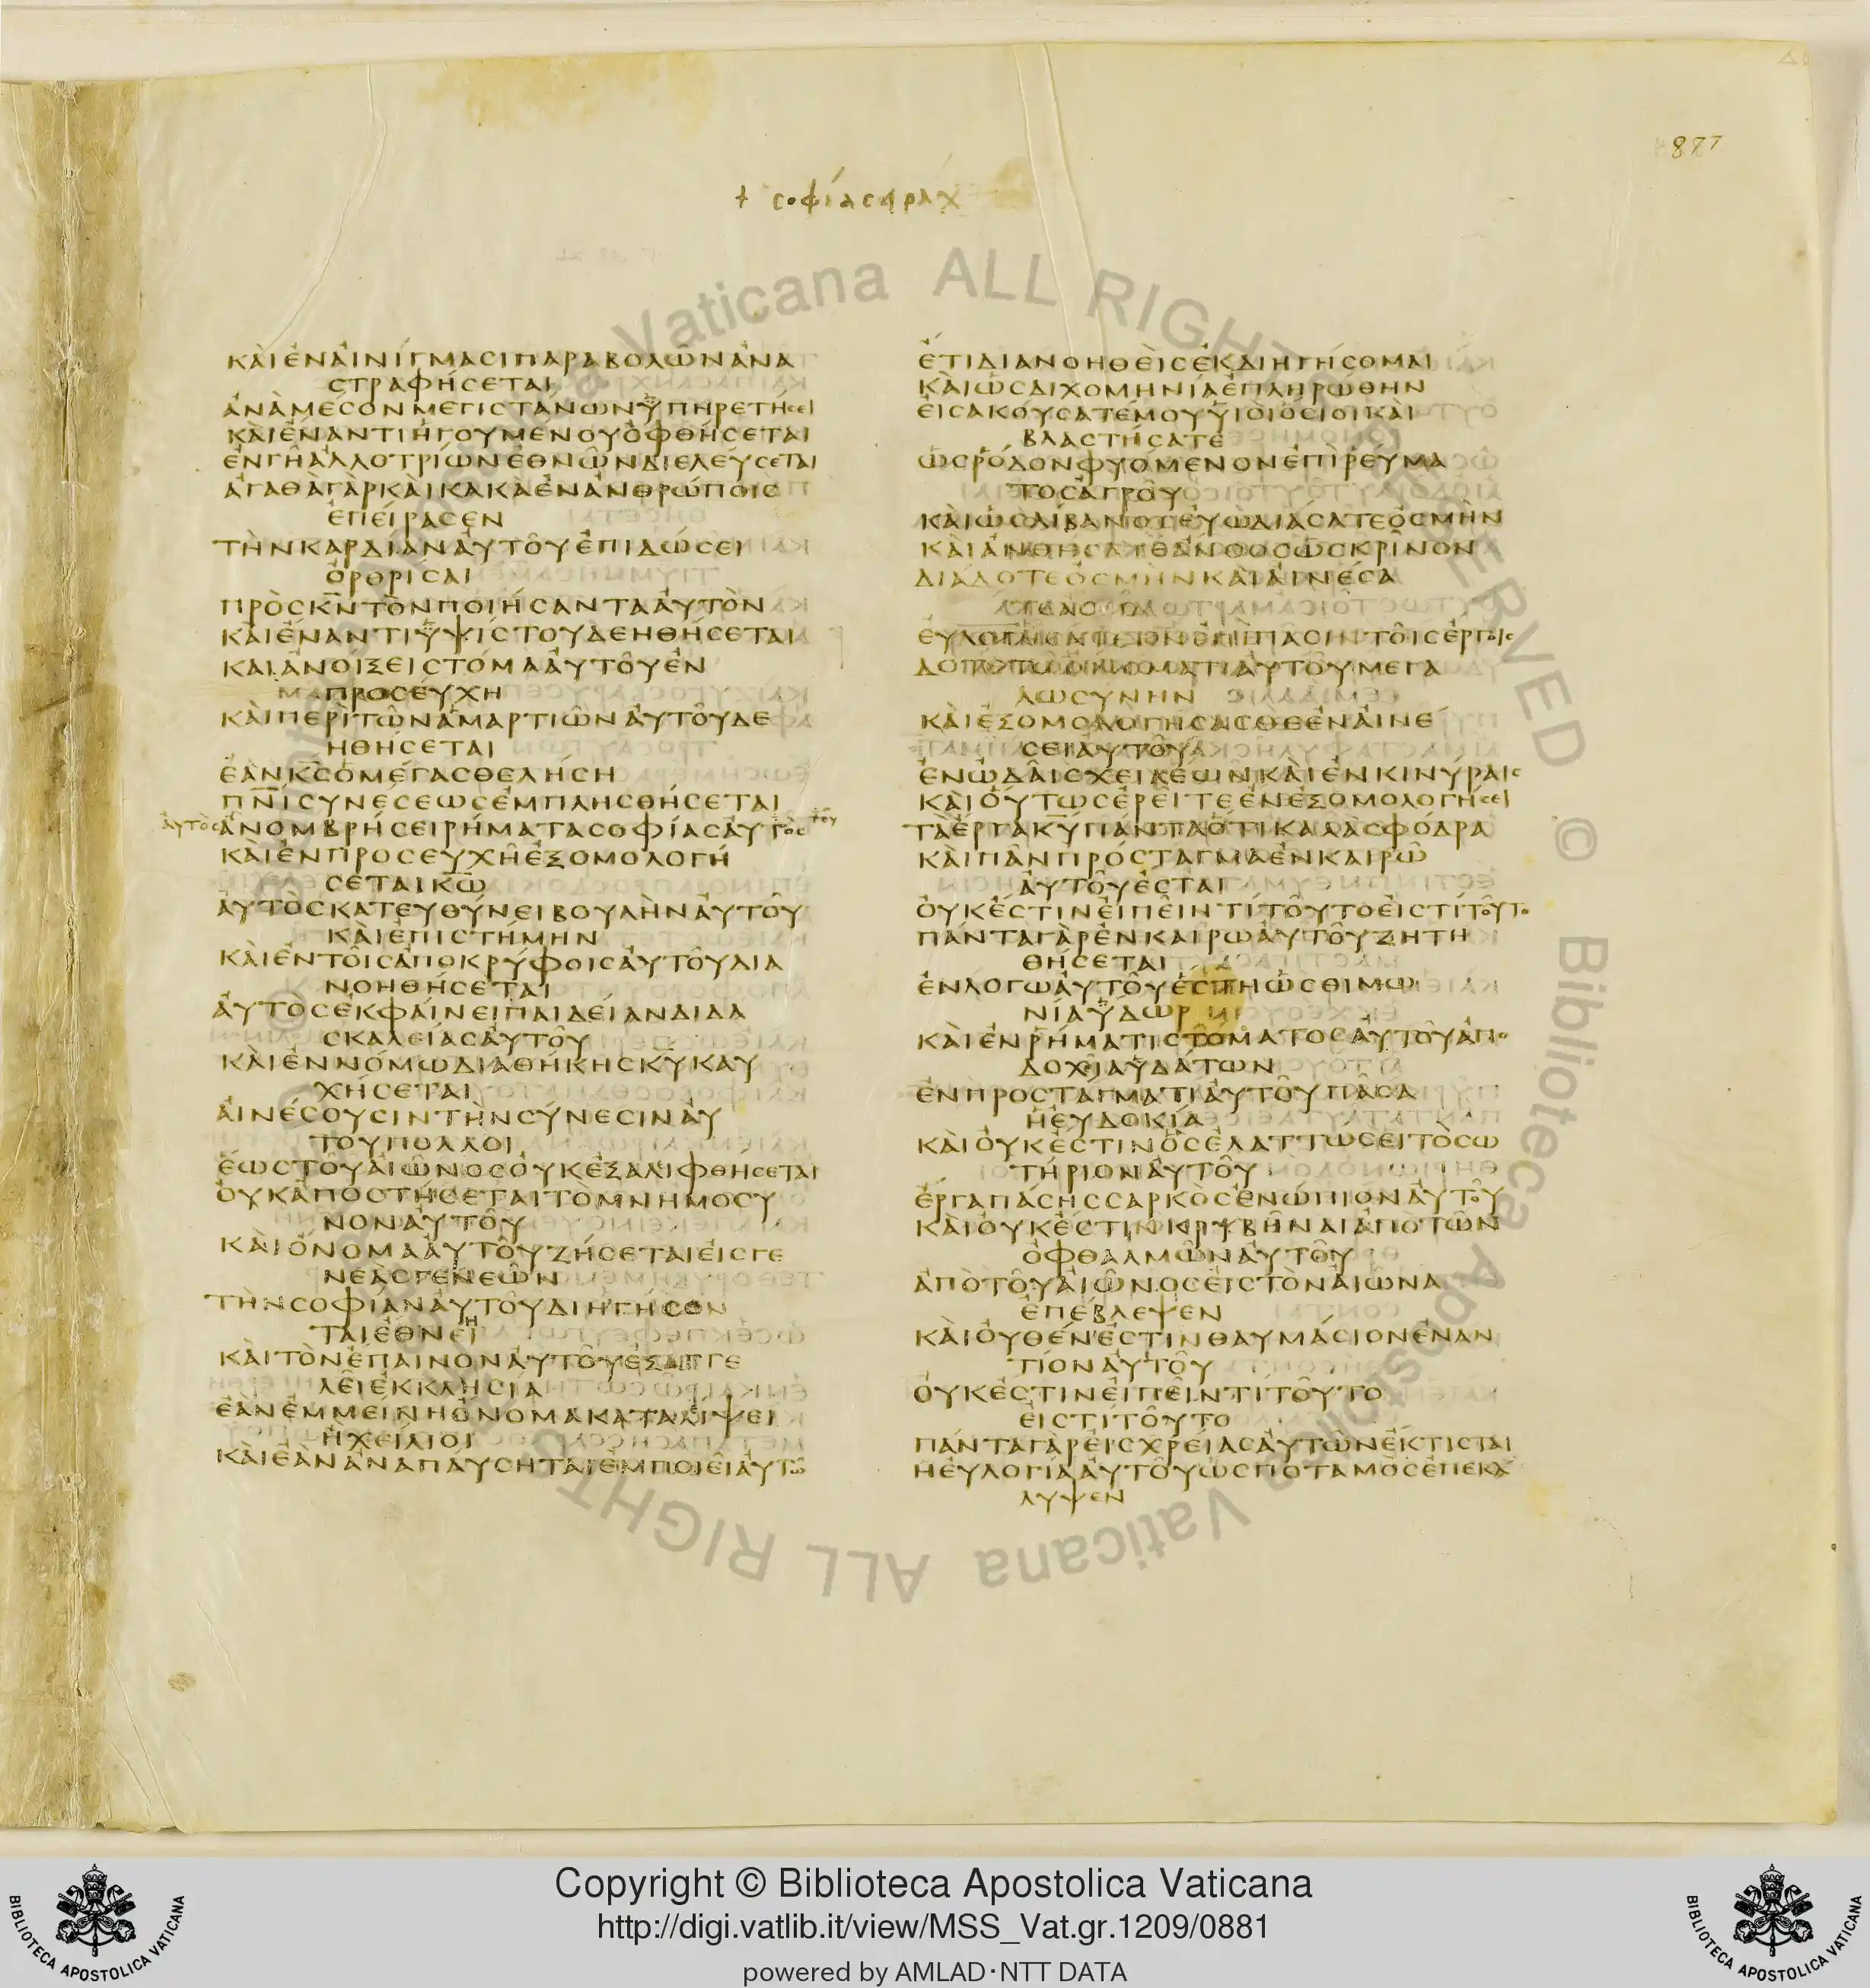 877
+ σοφία σιραχ
ΚΑΙΕΝΑΙΝΙΓΜΑCΙΠΑΡΑΒΟΛΩΝΑΝΑ
CΤΡΑΦΗCΕΤΑΙ
ΑΝΑΜΕCΟΝΜΕΓΙCΤΑΝΩΝΥΠΗΡΕΤΗCΕΙ
ΚΑΙΕΝΑΝΤΙΗΓΟΥΜΕΝΟΥΟΦΘΗCΕΤΑΙ
ΕΝΓΗΑΛΛΟΤΡΙΩΝΕΘΝΩΝΔΙΕΛΕΥCΕΤΑΙ
ΑΓΑΘΑΓΑΡΚΑΙΚΑΚΑΕΝΑΝΘΡΩΠΟΙC
ΕΠΕΙΡΑCΕΝ
ΤΗΝΚΑΡΔΙΑΝΑΥΤΟΥΕΠΙΔΩCΕΙ
ΟΡΘΡΙCΑΙ
ΠΡΟCΚΝΤΟΝΠΟΙΗCΑΝΤΑΑΥΤΟΝ
ΚΑΙΕΝΑΝΤΙΥΨΙCΤΟΥΔΕΗΘΗCΕΤΑΙ
ΚΑΙΑΝΟΙΞΕΙCΤΟΜΑΑΥΤΟΥΕΝ
ΠΡΟCΕΥΧΗ
ΚΑΙΠΕΡΙΤΩΝΑΜΑΡΤΙΩΝΑΥΤΟΥΔΕ
ΗΘΗCΕΤΑΙ
ΕΑΝΚCΟΜΕΓΑCΘΕΛΗCΗ
ΠΝΙCΥΝΕCΕΩCΕΜΠΛΗCΘΗCΕΤΑΙ
αὐτὸς ΑΝΟΜΒΡΗCΕΙΡΗΜΑΤΑCΟΦΙΑCΑΥΤΟC τοῦ
ΚΑΙΕΝΠΡΟCΕΥΧΗΕΞΟΜΟΛΟΓΗ
CΕΤΑΙΚΩ
ΑΥΤΟCΚΑΤΕΥΘΥΝΕΙΒΟΥΛΗΝΑΥΤΟΥ
ΚΑΙΕΠΙCΤΗΜΗΝ
ΚΑΙΕΝΤΟΙCΑΠΟΚΡΥΦΟΙCΑΥΤΟΥΔΙΑ
ΝΟΗΘΗCΕΤΑΙ
ΑΥΤΟCΕΚΦΑΙΝΕΙΠΑΙΔΕΙΑΝΔΙΔΑ
CΚΑΛΕΙΑCΑΥΤΟΥ
ΚΑΙΕΝΝΟΜΩΔΙΑΘΗΚΗCΚΥΚΑΥ
ΧΗCΕΤΑΙ
ΑΙΝΕCΟΥCΙΝΤΗΝCΥΝΕCΙΝΑΥ
ΤΟΥΠΟΛΛΟΙ
ΕΩCΤΟΥΑΙΩΝΟCΟΥΚΕΞΑΛΙΦΘΗCΕΤΑΙ
ΟΥΚΑΠΟCΤΗCΕΤΑΙΤΟΜΝΗΜΟCΥ
ΝΟΝΑΥΤΟΥ
ΚΑΙΟΝΟΜΑΑΥΤΟΥΖΗCΕΤΑΙΕΙCΓΕ
ΝΕΑCΓΕΝΕΩΝ
ΤΗΝCΟΦΙΑΝΑΥΤΟΥΔΙΗΓΗCΟΝ
ΤΑΙΕΘΝΕΙΗ
ΚΑΙΤΟΝΕΠΑΙΝΟΝΑΥΤΟΥΕΞΑΓΓΕ
ΛΕΙΕΚΚΛΗCΙΑ
ΕΑΝΕΜΜΕΙΝΗΟΝΟΜΑΚΑΤΑΛΙΨΕΙ
ΗΧΕΙΛΙΟΙ
ΚΑΙΕΑΝΑΝΑΠΑΥCΗΤΑΙΕΜΠΟΙΕΙΑΥΤΩ
ΕΤΙΔΙΑΝΟΗΘΕΙCΕΚΔΙΗΓΗCΟΜΑΙ
ΚΑΙΩCΔΙΧΟΜΗΝΙΑΕΠΛΗΡΩΘΗΝ
ΕΙCΑΚΟΥCΑΤΕΜΟΥΥΙΟΙΟCΙΟΙΚΑΙ
ΒΛΑCΤΗCΑΤΕ
ΩCΡΟΔΟΝΦΥΟΜΕΝΟΝΕΠΙΡΕΥΜΑ
ΤΟCΑΓΡΟΥ
ΚΑΙΩCΛΙΒΑΝΟCΕΥΩΔΙΑCΑΤΕΟCΜΗΝ
ΚΑΙΑΝΘΗCΑΤΕΑΝΘΟCΩCΚΡΙΝΟΝ
ΔΙΑΔΟΤΕΟCΜΗΝΚΑΙΑΙΝΕCΑ
ΤΕΑCΜΑ
ΕΥΛΟΓΗCΑΤΕΚΝΕΠΙΠΑCΙΝΤΟΙCΕΡΓΟΙC
ΔΟΤΕΤΩΟΝΟΜΑΤΙΑΥΤΟΥΜΕΓΑ
ΛΩCΥΝΗΝ
ΚΑΙΕΞΟΜΟΛΟΓΗCΑCΘΕΕΝΑΙΝΕ
CΕΙΑΥΤΟΥ
ΕΝΩΔΑΙCΧΕΙΛΕΩΝΚΑΙΕΝΚΙΝΥΡΑΙC
ΚΑΙΟΥΤΩCΕΡΕΙΤΕΕΝΕΞΟΜΟΛΟΓΗCΕΙ
ΤΑΕΡΓΑΚΥΠΑΝΤΑΟΤΙΚΑΛΑCΦΟΔΡΑ
ΚΑΙΠΑΝΠΡΟCΤΑΓΜΑΕΝΚΑΙΡΩ
ΑΥΤΟΥΕCΤΑΙ
ΟΥΚΕCΤΙΝΕΙΠΕΙΝΤΙΤΟΥΤΟΕΙCΤΙΤΟΥΤΟ
ΠΑΝΤΑΓΑΡΕΝΚΑΙΡΩΑΥΤΟΥΖΗΤΗ
ΘΗCΕΤΑΙ
ΕΝΛΟΓΩΑΥΤΟΥΕCΤΗΩCΘΙΜΩ
ΝΙΑΥΔΩΡ
ΚΑΙΕΝΡΗΜΑΤΙCΤΟΜΑΤΟCΑΥΤΟΥΑΠΟ
ΔΟΧΙΑΥΔΑΤΩΝ
ΕΝΠΡΟCΤΑΓΜΑΤΙΑΥΤΟΥΠΑCΑ
ΗΕΥΔΟΚΙΑ
ΚΑΙΟΥΚΕCΤΙΝΟCΕΛΑΤΤΩCΕΙΤΟCΩ
ΤΗΡΙΟΝΑΥΤΟΥ
ΕΡΓΑΠΑCΗCCΑΡΚΟCΕΝΩΠΙΟΝΑΥΤΟΥ
ΚΑΙΟΥΚΕCΤΙΝΚΡΥΒΗΝΑΙΑΠΟΤΩΝ
ΟΦΘΑΛΜΩΝΑΥΤΟΥ
ΑΠΟΤΟΥΑΙΩΝΟCΕΙCΤΟΝΑΙΩΝΑ
ΕΠΕΒΛΕΨΕΝ
ΚΑΙΟΥΘΕΝΕCΤΙΝΘΑΥΜΑCΙΟΝΕΝΑΝ
ΤΙΟΝΑΥΤΟΥ
ΟΥΚΕCΤΙΝΕΙΠΕΙΝΤΙΤΟΥΤΟ
ΕΙCΤΙΤΟΥΤΟ
ΠΑΝΤΑΓΑΡΕΙCΧΡΕΙΑCΑΥΤΩΝΕΚΤΙCΤΑΙ
ΗΕΥΛΟΓΙΑΑΥΤΟΥΩCΠΟΤΑΜΟCΕΠΕΚΑ
ΛΥΨΕΝ
Vaticana ALL RIGHTS RESERVED © Biblioteca Apostolica Vaticana ALL RIGHTS
BIBLIOTECA APOSTOLICA VATICANA
Copyright © Biblioteca Apostolica Vaticana
http://digi.vatlib.it/view/MSS_Vat.gr.1209/0881
powered by AMLAD·NTT DATA
BIBLIOTECA APOSTOLICA VATICANA